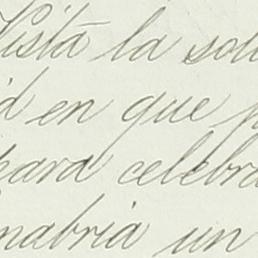 Vista la soli
d en que p
para celebra
nabria un